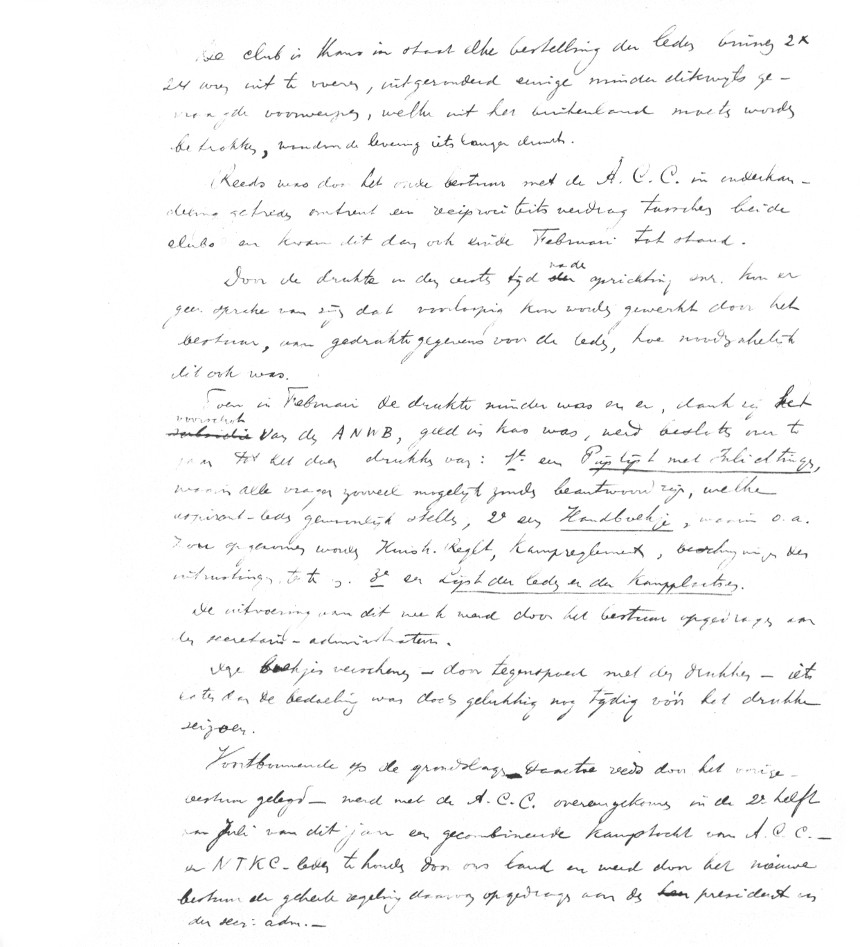 De club is thans in staat elke bestelling der leden binnen 2 x
24 uren uit te voeren, uitgezonderd eenige minder dikwijls ge-
vraagde voorwerpen, welke uit het buitenland moeten worden
betrokken, waardoor de levering iets langer duurt.
Reeds was door het oude bestuur met de A.C.C. in onderhan-
deling getreden omtrent een reciprociteitsverdrag tusschen beide
clubs en kwam dit dan ook einde Februari tot stand.
Door de drukte in den eersten tijd na de oprichting enz. kon er
geen sprake van zijn dat voorloopig kon worden gewerkt door het
bestuur, aan gedrukte gegevens voor de leden, hoe noodzakelijk
dit ook was.
Toen in Februari de drukte minder was en er, dank zij het
voorschot van den ANWB, geld in kas was, werd besloten over te
gaan tot het doen drukken van: 1e een Prijslijst met Inlichtingen,
waarin alle vragen zooveel mogelijk zouden beantwoord zijn, welke
aspirant-leden gewoonlijk stellen, 2e een Handboekje, waarin o.a.
opgenomen worden Huish. Reglt, Kampreglement, beschrijvingen der
uitrustingen 3e een Lijst der leden en der Kampplaatsen.
De uitvoering van dit werk werd door het bestuur opgedragen aan
den secretaris-administrateur.
boekjes verschenen - door tegenspoed met den drukker - iets
later dan de bedoeling was doch gelukkig nog tijdig vóór het drukke
seizoen.
Voortbouwende op de grondslagen daartoe reeds door het vorige
bestuur gelegd - werd met de A.C.C. overeengekomen in de 2e helft
van Juli van dit jaar een gecombineerde kamptocht van A.C.C. -
en NTKC-leden te houden door ons land en werd door het nieuwe
bestuur de geheele regeling daarvan opgedragen aan den president en
den secr: adm. -